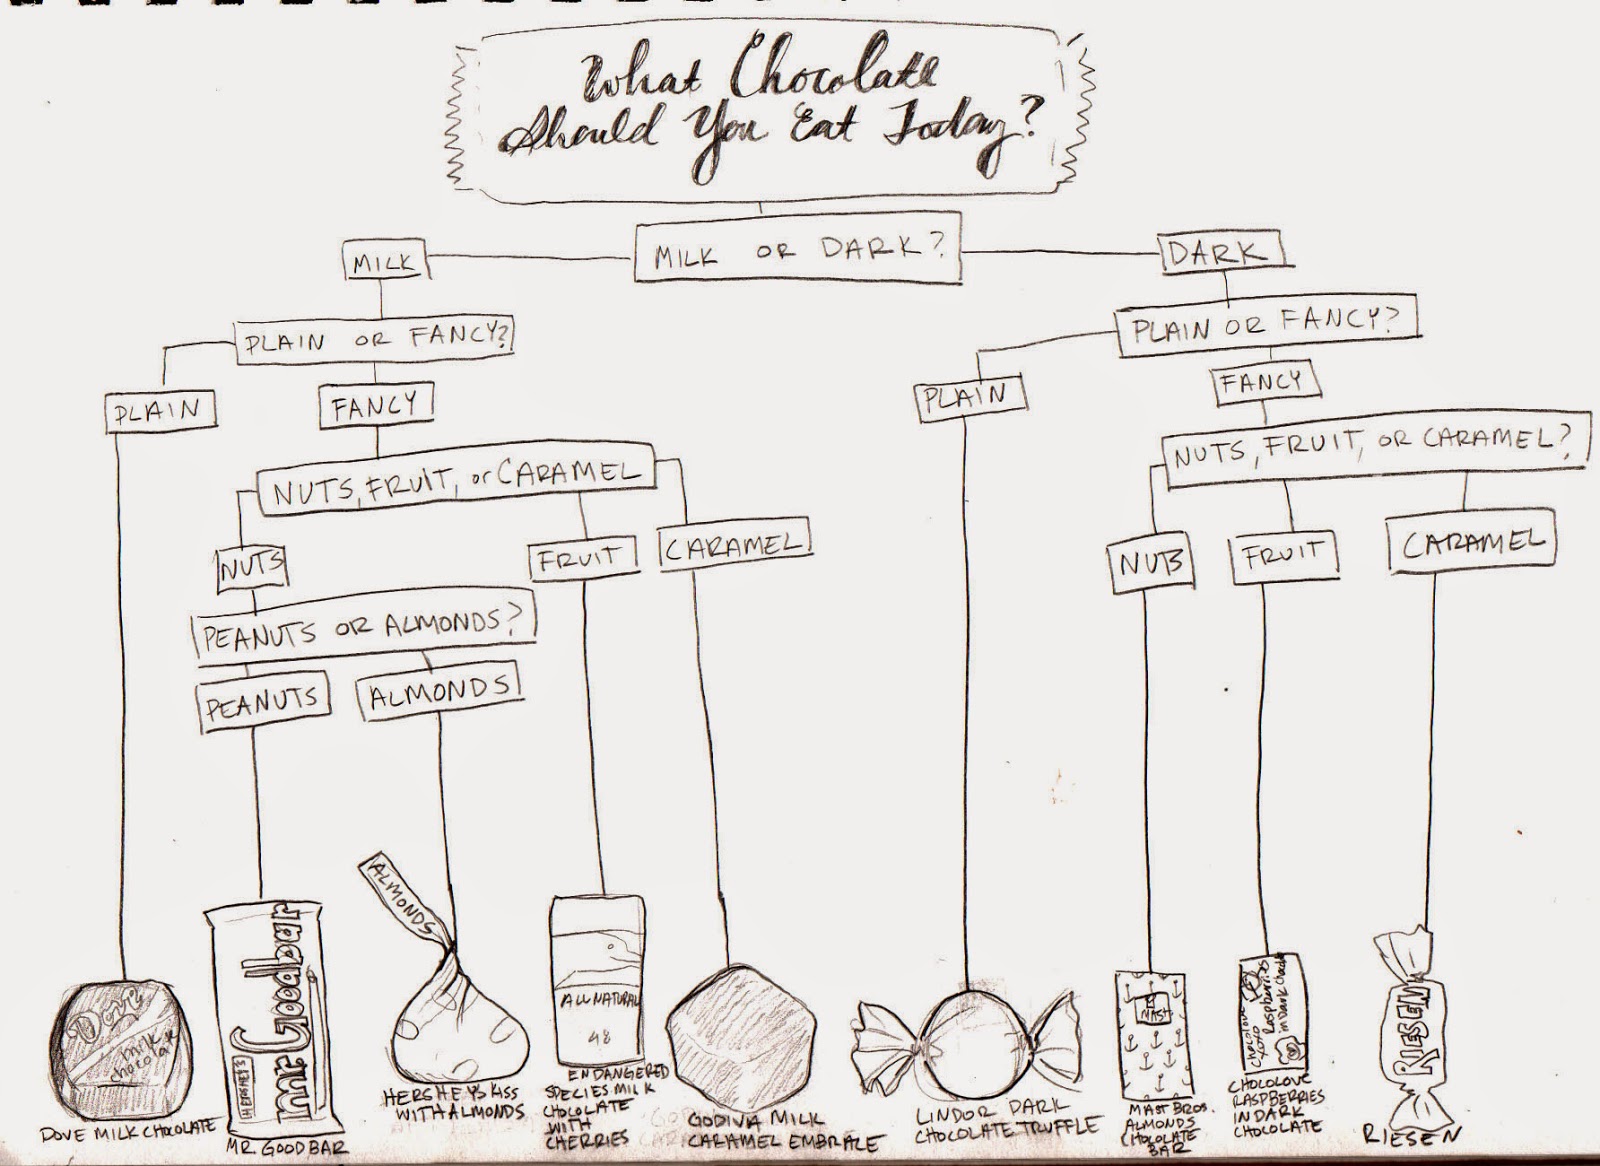 What Chocolate
Should You Eat Today?
MILK OR DARK?
MILK
DARK
PLAIN OR FANCY?
PLAIN OR FANCY?
PLAIN
FANCY
PLAIN
FANCY
NUTS, FRUIT, or CARAMEL
NUTS, FRUIT, OR CARAMEL?
NUTS
FRUIT
CARAMEL
NUTS
FRUIT
CARAMEL
PEANUTS OR ALMONDS?
PEANUTS
ALMONDS
Dove
milk
chocolate
DOVE MILK CHOCOLATE
HERSHEY'S
mr Goodbar
MR GOODBAR
ALMONDS
HERSHEYS KISS
WITH ALMONDS
ALL NATURAL
48
ENDANGERED
SPECIES MILK
CHOCOLATE
WITH
CHERRIES
GODIVA MILK
CARAMEL EMBRACE
LINDOR DARK
CHOCOLATE TRUFFLE
MAST
MAST BROS.
ALMONDS
CHOCOLATE
BAR
chocolove
xoxo
Raspberries
in Dark Chocolate
CHOCOLOVE
RASPBERRIES
IN DARK
CHOCOLATE
RIESEN
RIESEN